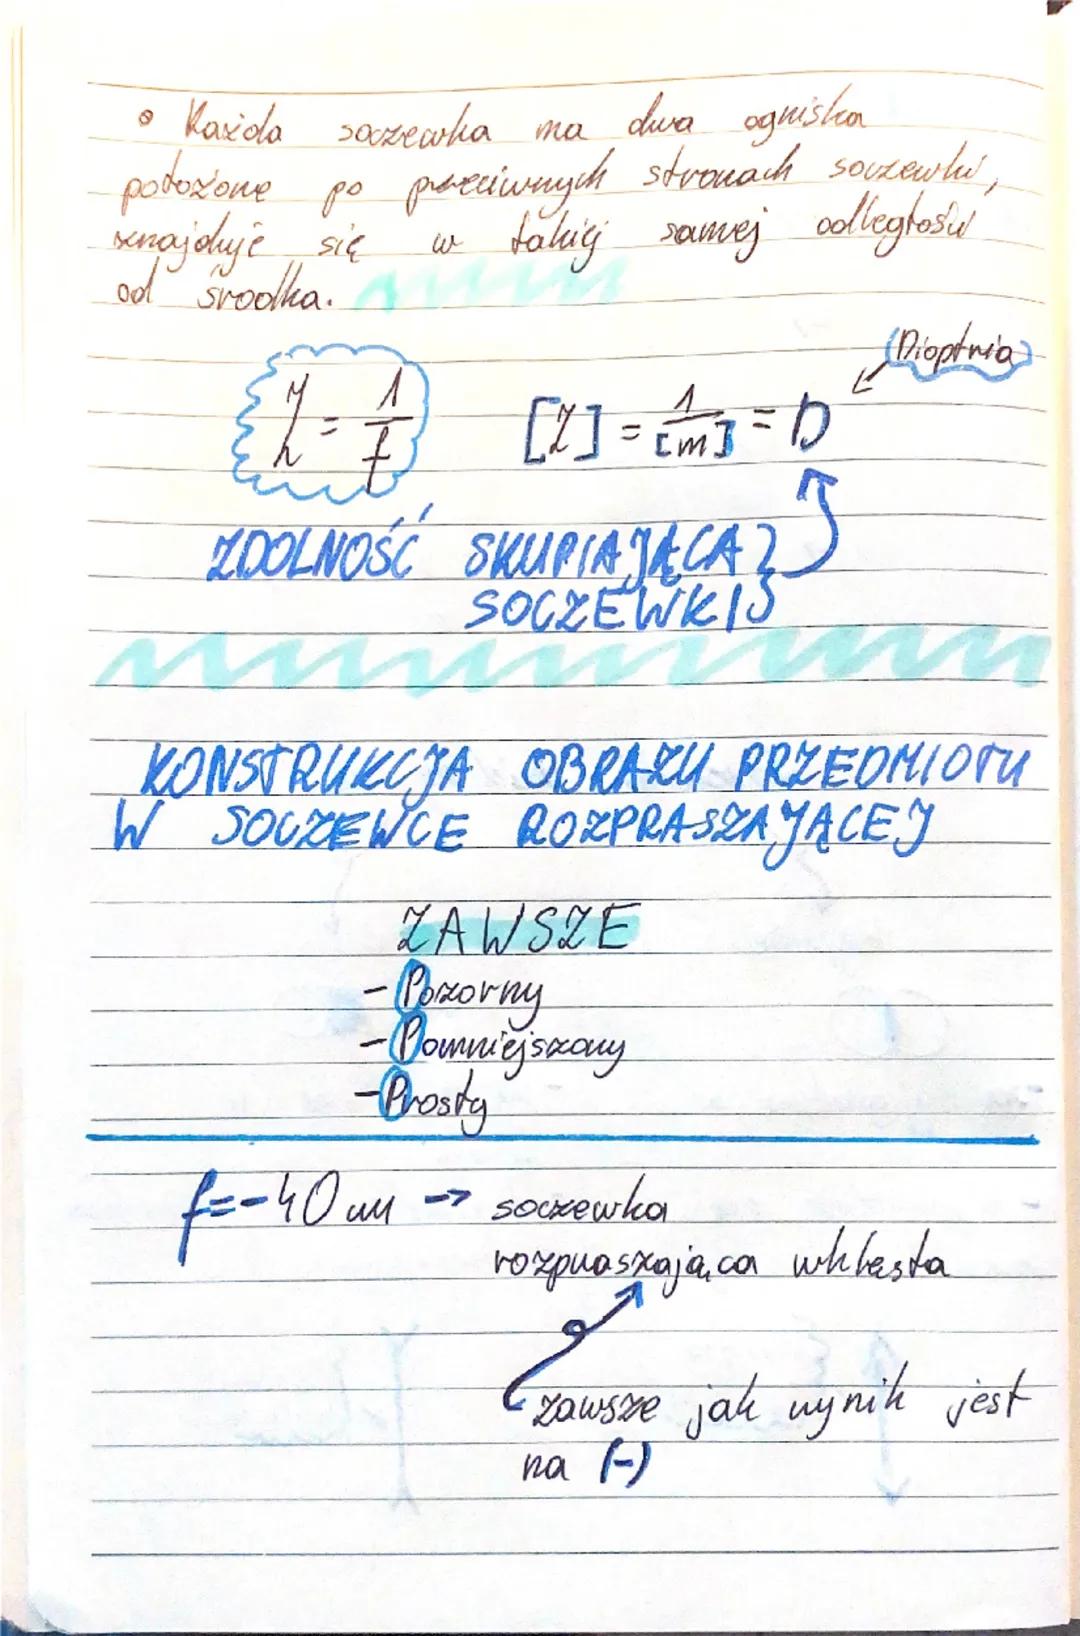 • Każda soczewka ma dwa ogniska
położone po przeciwnych stronach soczewki,
znajduje się w takiej samej odległości
od środka.
(Dioptria)
Z = 1/f [Z] = 1/[m] = D
ZDOLNOŚĆ SKUPIAJĄCA
SOCZEWKI
KONSTRUKCJA OBRAZU PRZEDMIOTU
W SOCZEWCE ROZPRASZAJĄCEJ
ZAWSZE
- Pozorny
- Pomniejszony
- Prosty
f = -40 cm -> soczewka
rozpraszająca wklęsła
zawsze jak wynik jest
na (-)